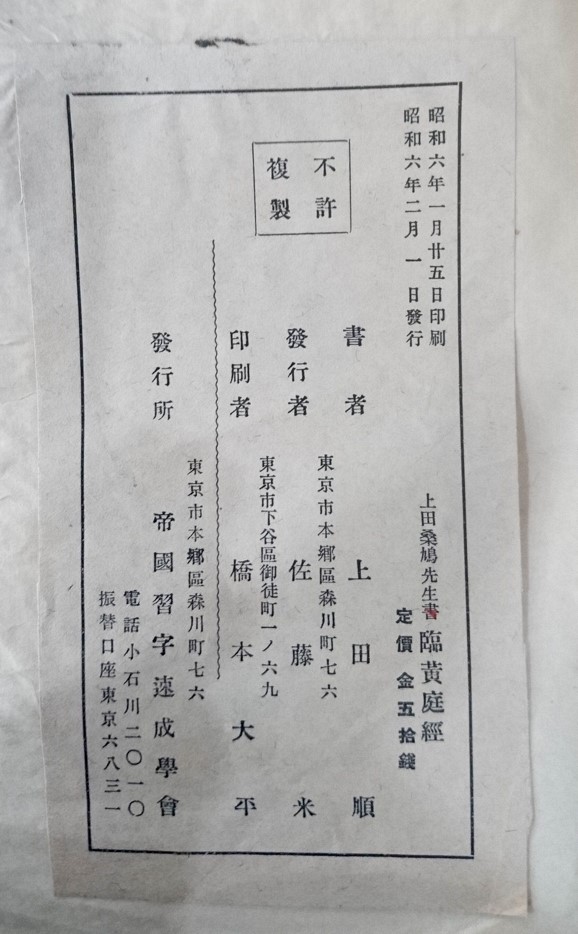 昭和六年一月廿五日印刷
昭和六年二月一日發行
上田桑鳩先生書 臨黃庭經
定價 金五拾錢
不許
複製
書者 上田順
東京市本鄕區森川町七六
發行者 佐藤米
東京市下谷區御徒町一ノ六九
印刷者 橋本大平
東京市本鄕區森川町七六
發行所 帝國習字速成學會
電話小石川二〇一〇
振替口座東京六八三一